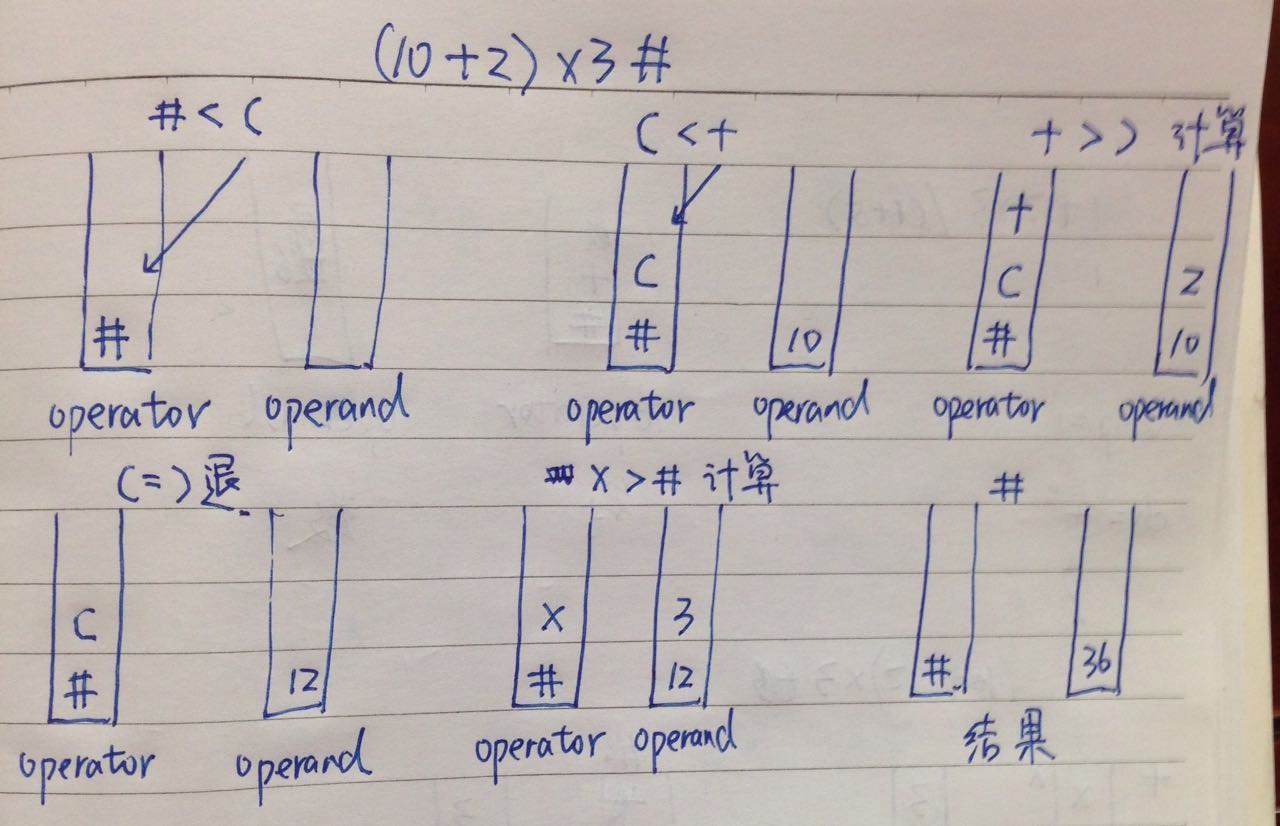 (10+2)×3#
#<(
(<+
+>) 计算
+
( ( 2
# # 10 # 10
operator operand operator operand operator operand
(=)退
×># 计算
#
( × 3
# 12 # 12 # 36
operator operand operator operand 结果